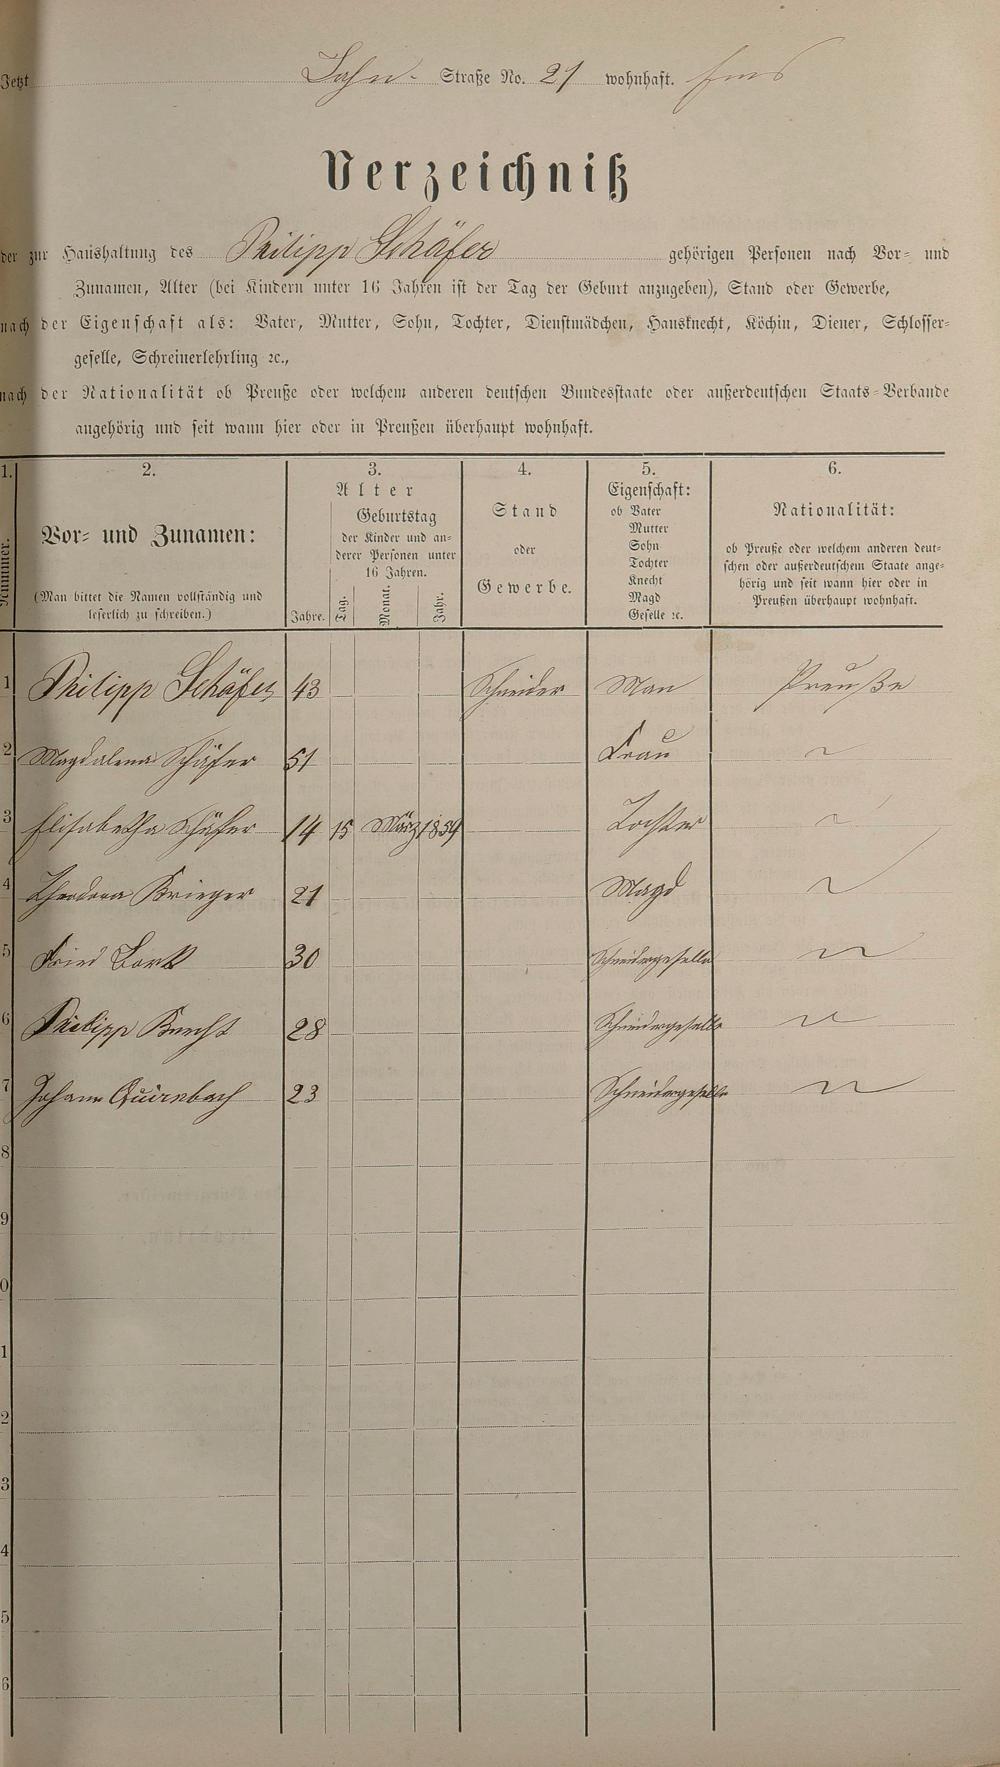 Jetzt Lahn- Straße No. 21 wohnhaft. Ems
Verzeichniß
der zur Haushaltung des Philipp Schäfer gehörigen Personen nach Vor- und
Zunamen, Alter (bei Kindern unter 16 Jahren ist der Tag der Geburt anzugeben), Stand oder Gewerbe,
nach der Eigenschaft als: Vater, Mutter, Sohn, Tochter, Dienstmädchen, Hausknecht, Köchin, Diener, Schlosser-
geselle, Schreinerlehrling ꝛc.,
nach der Nationalität ob Preuße oder welchem anderen deutschen Bundesstaate oder außerdeutschen Staats-Verbande
angehörig und seit wann hier oder in Preußen überhaupt wohnhaft.
1.
Nummer.
2.
Vor- und Zunamen:
(Man bittet die Namen vollständig und
leserlich zu schreiben.)
3.
Alter
Geburtstag
der Kinder und an-
derer Personen unter
16 Jahren.
Jahre. Tag. Monat. Jahr.
4.
Stand
oder
Gewerbe.
5.
Eigenschaft:
ob Vater
Mutter
Sohn
Tochter
Knecht
Magd
Geselle ꝛc.
6.
Nationalität:
ob Preuße oder welchem anderen deut-
schen oder außerdeutschem Staate ange-
hörig und seit wann hier oder in
Preußen überhaupt wohnhaft.
1 Philipp Schäfer 43 Schneider Man Preuße
2 Magdalena Schäfer 51 Frau
3 Elisabetha Schäfer 14 15 März 1859 Tochter
4 Theodora Krieger 21 Magd
5 Fried 30 Schneidergeselle
6 Philipp Knecht 28 Schneidergeselle
7 Johann Quirnbach 23 Schneidergeselle
8
9
0
1
2
3
4
5
6